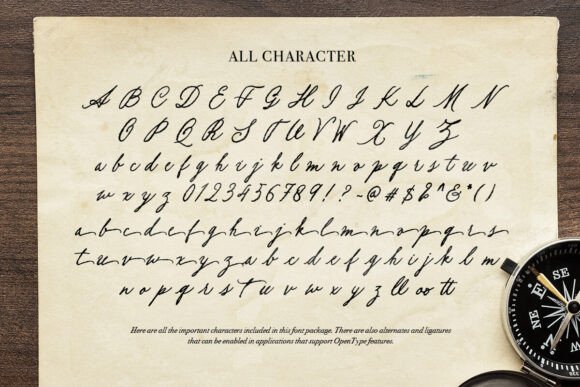 ALL CHARACTER
A B C D E F G H I J K L M N
O P Q R S T U V W X Y Z
a b c d e f g h i j k l m n o p q r s t u v
w x y z 0 1 2 3 4 5 6 7 8 9 ! ? - @ # $ % ^ & * ( )
a b c d e f g h i j k l m n o p q r s
t u v w x y z a b c d e f g h i j k l m
n o p q r s t u v w x y z ll oo tt
Here are all the important characters included in this font package. There are also alternates and ligatures
that can be enabled in applications that support OpenType features.
N
NE
E
SE
S